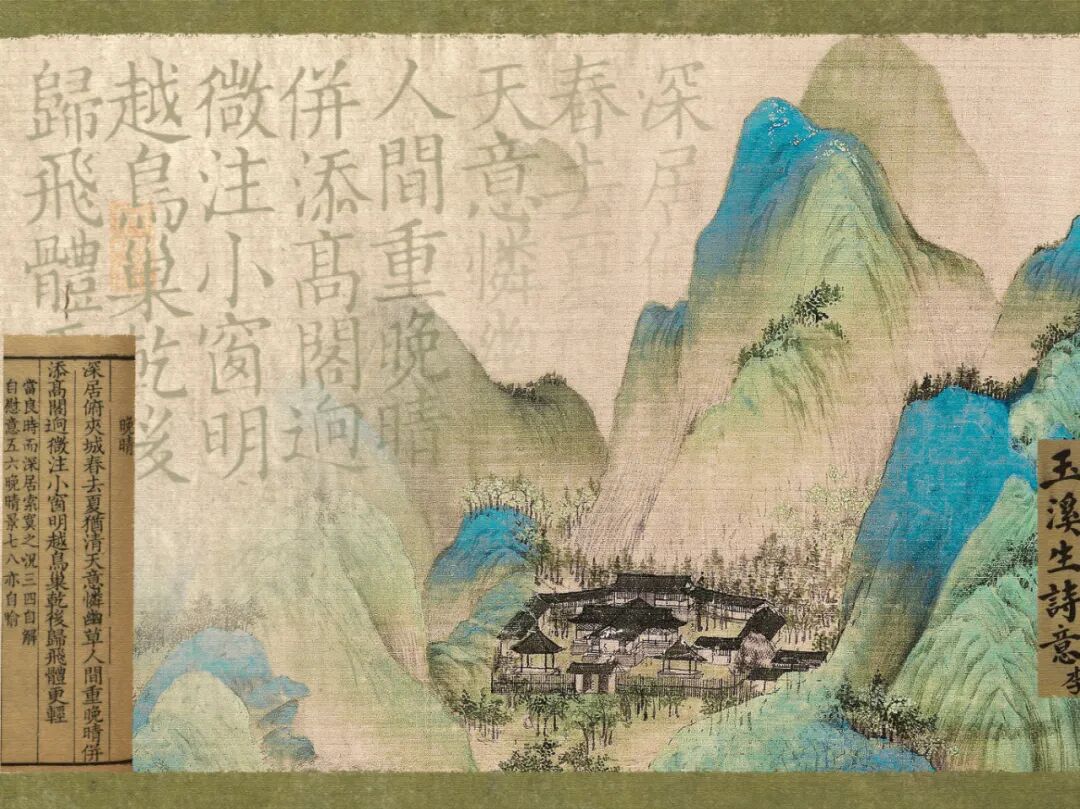 玉溪生詩意 李
深居
春去
天意憐幽
人間重晚晴
併添髙閣逈
微注小窗明
越鳥巢乾後
歸飛體
晚晴
深居俯夾城春去夏猶清天意憐幽草人間重晚晴併
添髙閣逈微注小窗明越鳥巢乾後歸飛體更輕
當良時而深居索寞之況三四自解
自慰意五六晚晴景七八亦自喻